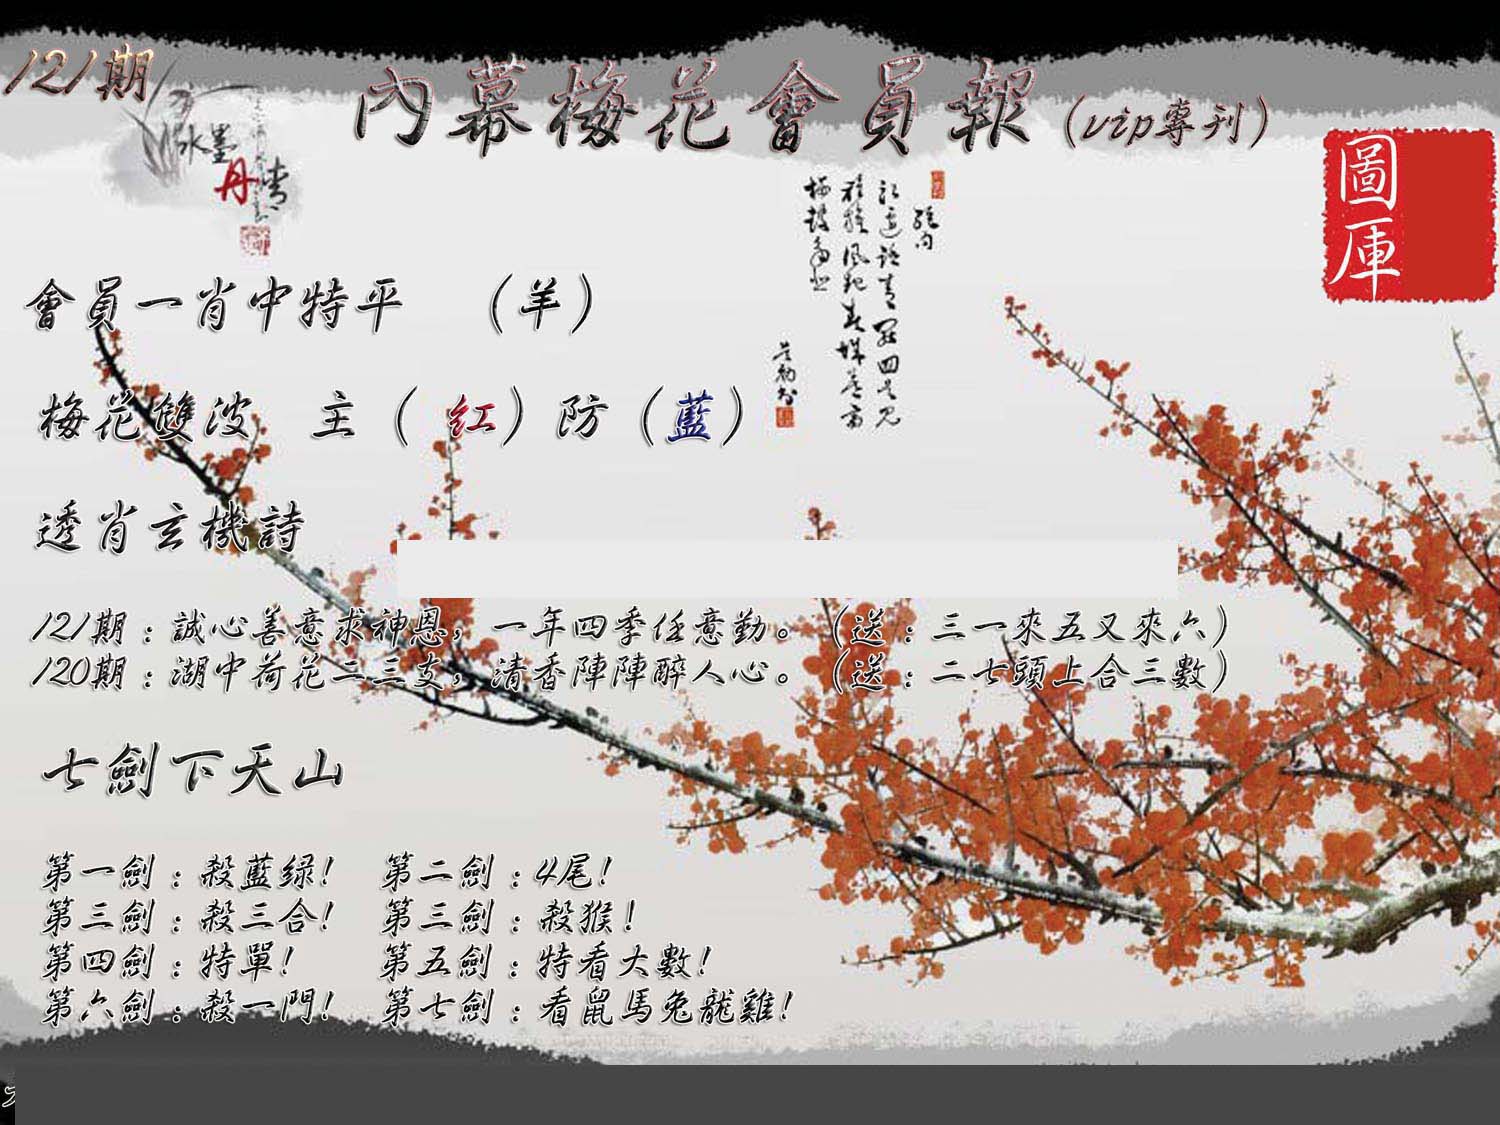 121期
內幕梅花會員報（vip專刊）
水墨
丹青
圖庫
會員一肖中特平 （羊）
梅花雙波 主（紅）防（藍）
透肖玄機詩
121期：誠心善意求神恩，一年四季任意勤。（送：三一來五又來六）
120期：湖中荷花二三支，清香陣陣醉人心。（送：二七頭上合三數）
七劍下天山
第一劍：殺藍绿！ 第二劍：4尾！
第三劍：殺三合！ 第三劍：殺猴！
第四劍：特單！ 第五劍：特看大數！
第六劍：殺一門！ 第七劍：看鼠馬兔龍雞！